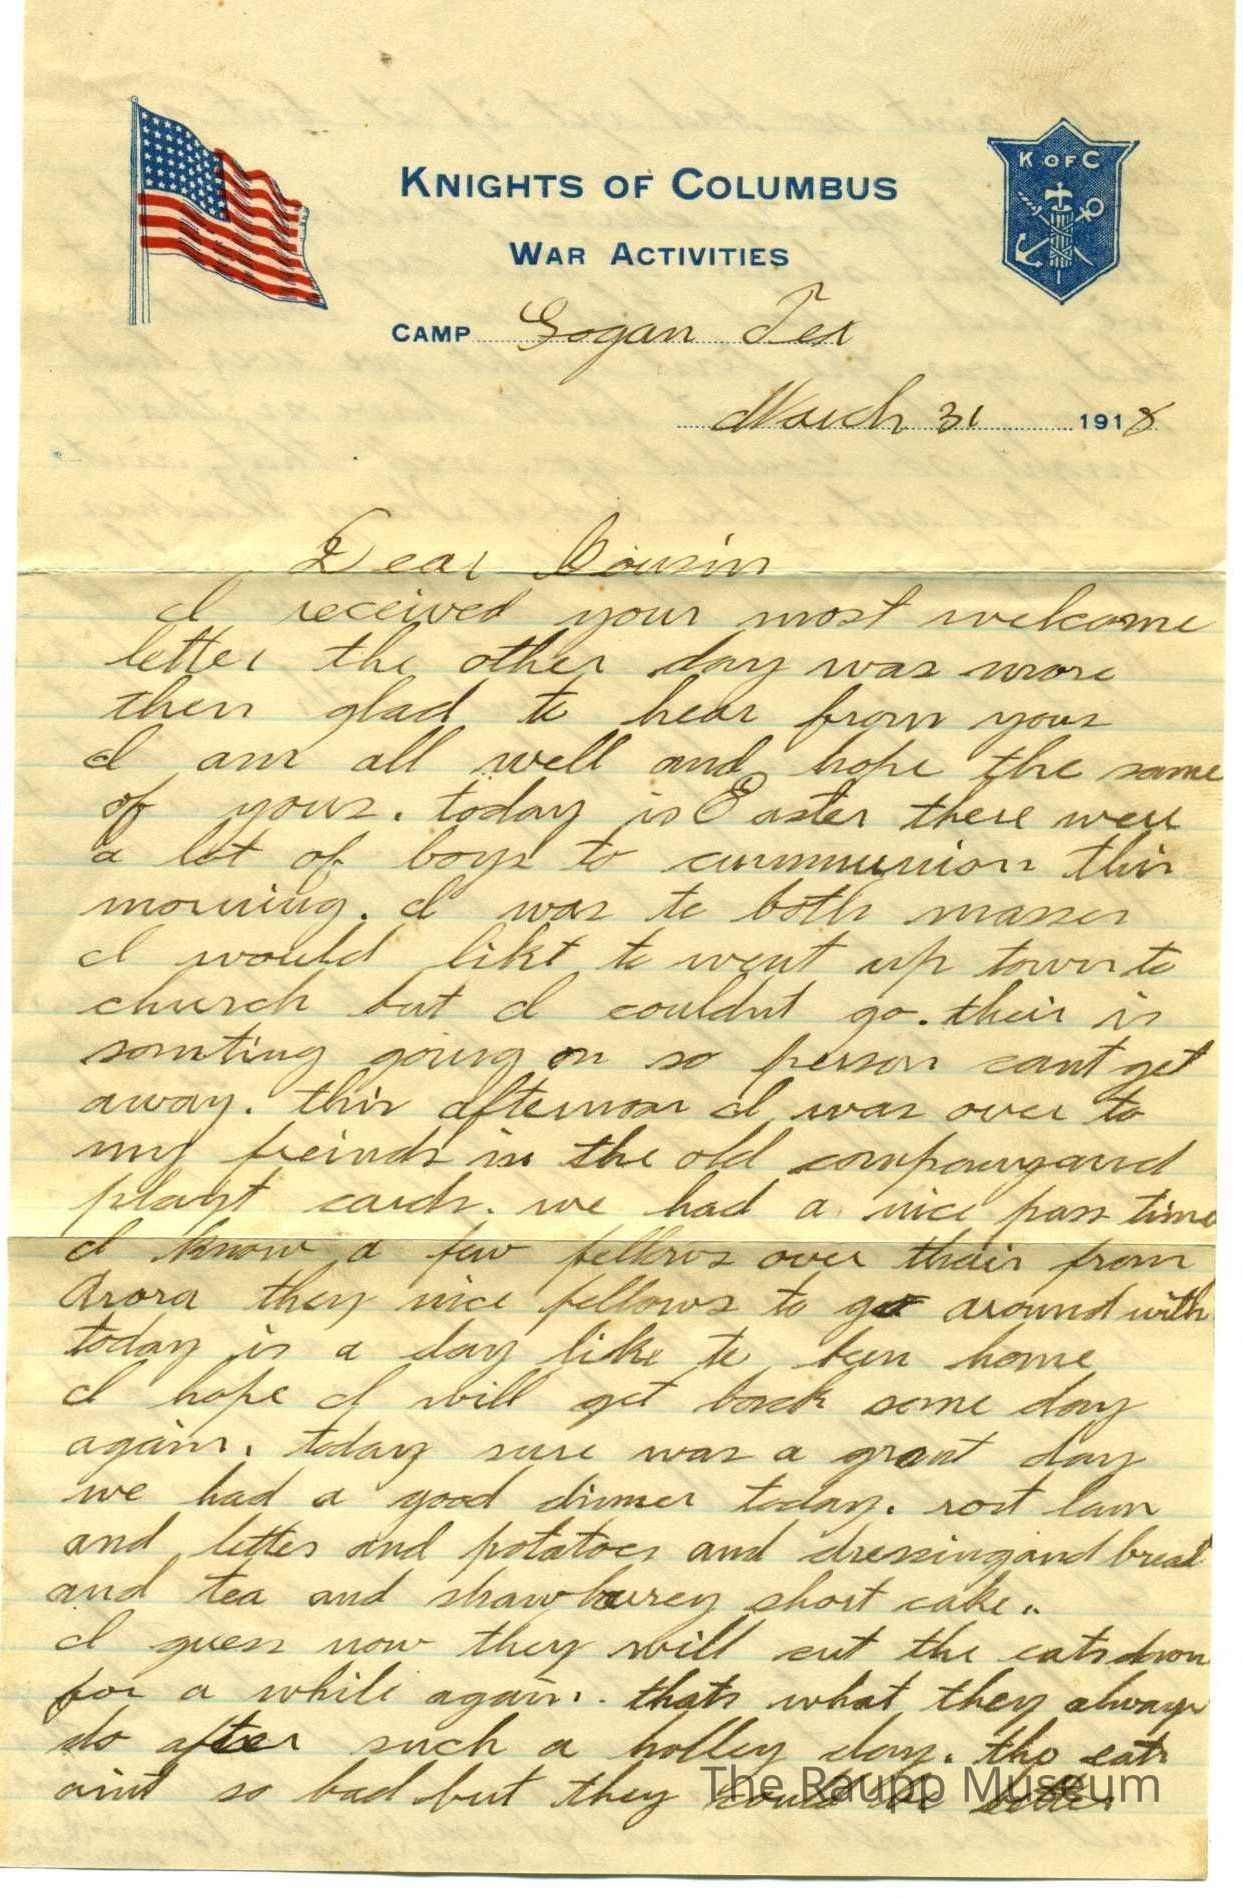 K OF C
KNIGHTS OF COLUMBUS
WAR ACTIVITIES
CAMP Logan Tex
March 31 1918
Dear Cousin
I received your most welcome
letter the other day was more
then glad to hear from you
I am all well and hope the same
of yours. today is Easter there were
a lot of boys to cummunion this
morning. I was to both masses
I would like to went up town to
church but I couldnt go. their is
somting going on so person cant get
away. this afternoon I was over to
my freinds in the old company and
playt cards. we had a nice pass time
I know a few fellows over thair from
Arora they nice fellows to go around with
today is a day like to been home
I hope I will get back some day
again. today sure was a grant day
we had a good dinner today. rost lam
and lettes and potatoes and dressing and bread
and tea and strawburey short cake..
I guess now they will cut the eats down
for a while again. thats what they always
do after such a holley day. the eats
aint so bad but they could be better
The Raupp Museum